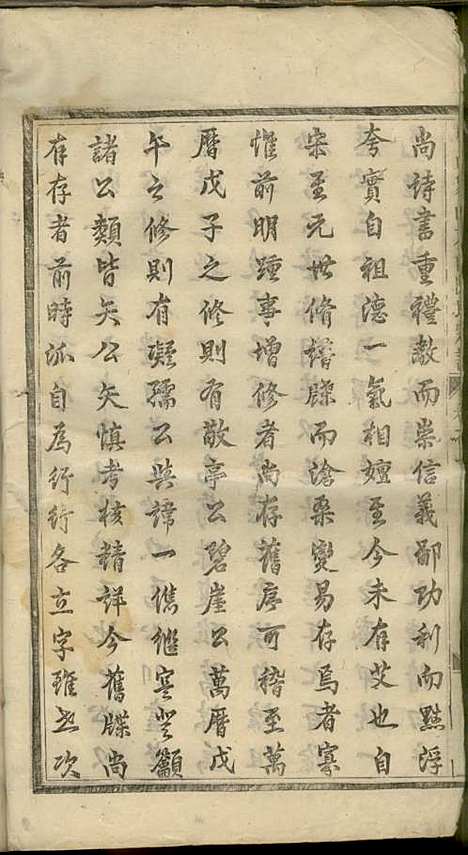 尚詩書重禮教而崇信義鄙功利而黜浮
夸實自祖德一氣相嬗至今未有艾也自
宋至元世脩譜牒而滄桑變易存焉者寡
惟前明踵事增修者尚存舊序可稽至萬
曆戊子之修則有敬亭公碧崖公萬曆戊
午之修則有凝孺公與諱一儁繼寒登籲
諸公類皆矢公矢慎考核精詳今舊牒尚
有存者前時派自為行行各立字雖世次